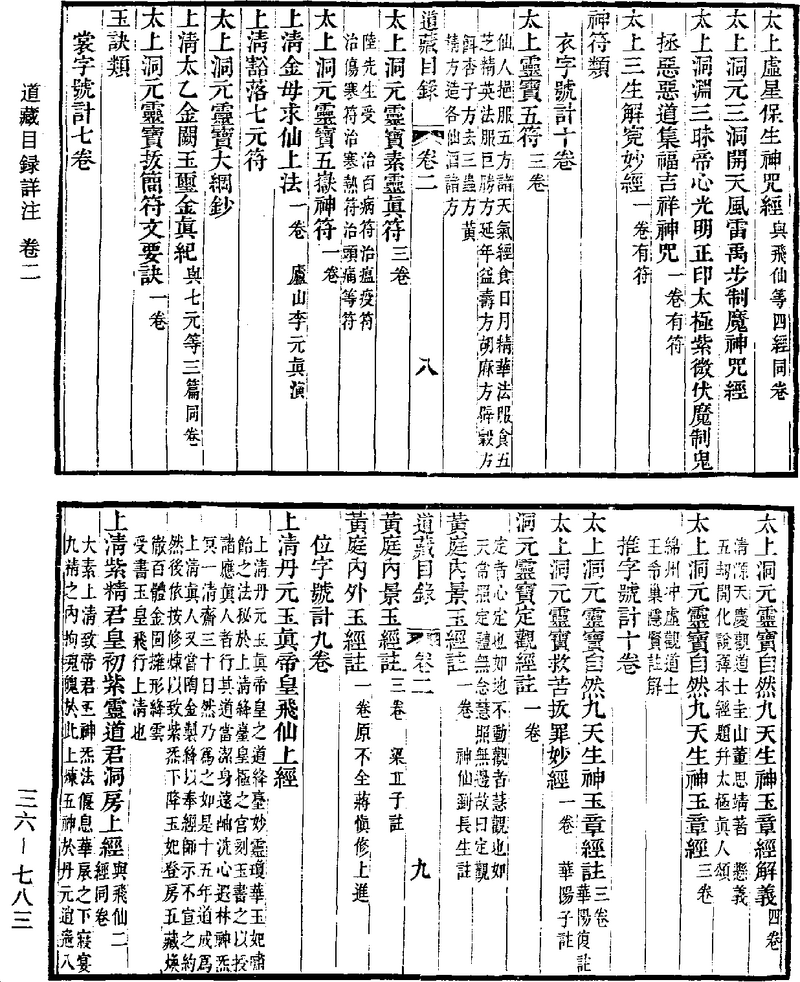 太上虛星保生神咒經與飛仙等四經同卷
太上洞元三洞開天風雷禹步制魔神咒經
太上洞淵三昧帝心光明正印太極紫微伏魔制鬼
拯惡惡道集福吉祥神咒一卷有符
太上三生解寃妙經一卷有符
神符類
衣字號計十卷
太上靈寶五符三卷
仙人挹服五方諸天氣經食日月精華法服食五
芝精英法服巨勝方延年益壽方胡麻方辟穀方
餌杏子方去三蟲方黃
精方造各仙酒諸方
道藏目録 卷二 八
太上洞元靈寶素靈眞符三卷
陸先生受 治百病符治瘟疫符
治傷寒符治寒熱符治頭痛等符
太上洞元靈寶五嶽神符一卷
上清金母求仙上法一卷 廬山李元眞演
上清豁落七元符
太上洞元靈寶大綱鈔
上清太乙金闕玉璽金眞紀與七元等三篇同卷
太上洞元靈寶投簡符文要訣一卷
玉訣類
裳字號計七卷
道藏目録詳注 卷二
太上洞元靈寶自然九天生神玉章經解義四卷
清源天慶觀道士圭山董思靖著 懸義
五刼開化說釋本經題幷太極眞人頌
太上洞元靈寶自然九天生神玉章經三卷
綿州冲虛觀道士
王希巢隱賢註解
推字號計十卷
太上洞元靈寶自然九天生神玉章經註三卷華陽復註
太上洞元靈寶救苦拔罪妙經一卷 華陽子註
洞元靈寶定觀經註一卷
定者心定也如地不動觀者慧觀也如
天常照定體無念慧照無邊故曰定觀
黃庭內景玉經註一卷 神仙劉長生註
道藏目録 卷二 九
黃庭內景玉經註三卷 梁丘子註
黃庭內外玉經註一卷原不全蔣愼修上進
位字號計九卷
上清丹元玉眞帝皇飛仙上經
上清丹元玉眞帝皇之道絳臺妙靈瓊華玉妃嘯
飴之法秘於上清絳臺皇極之宮刻玉書之以授
諸應眞人者行其道當潔身遠岫洗心遐林神炁
冥一清齋三十日然乃爲之如是十五年道成爲
上清眞人又當陶金製絳以奉經師示不宣之約
然後依按修煉以致紫炁下降玉妃登房五藏煥
徹百體金固擁形絳雲
受書玉皇飛行上清也
上清紫精君皇初紫靈道君洞房上經與飛仙二經同卷
大素上清致帝君五神炁法偃息華扆之下寂宴
九精之內拘魂魄於此上煉五神於丹元逍遙八
三六－七八三